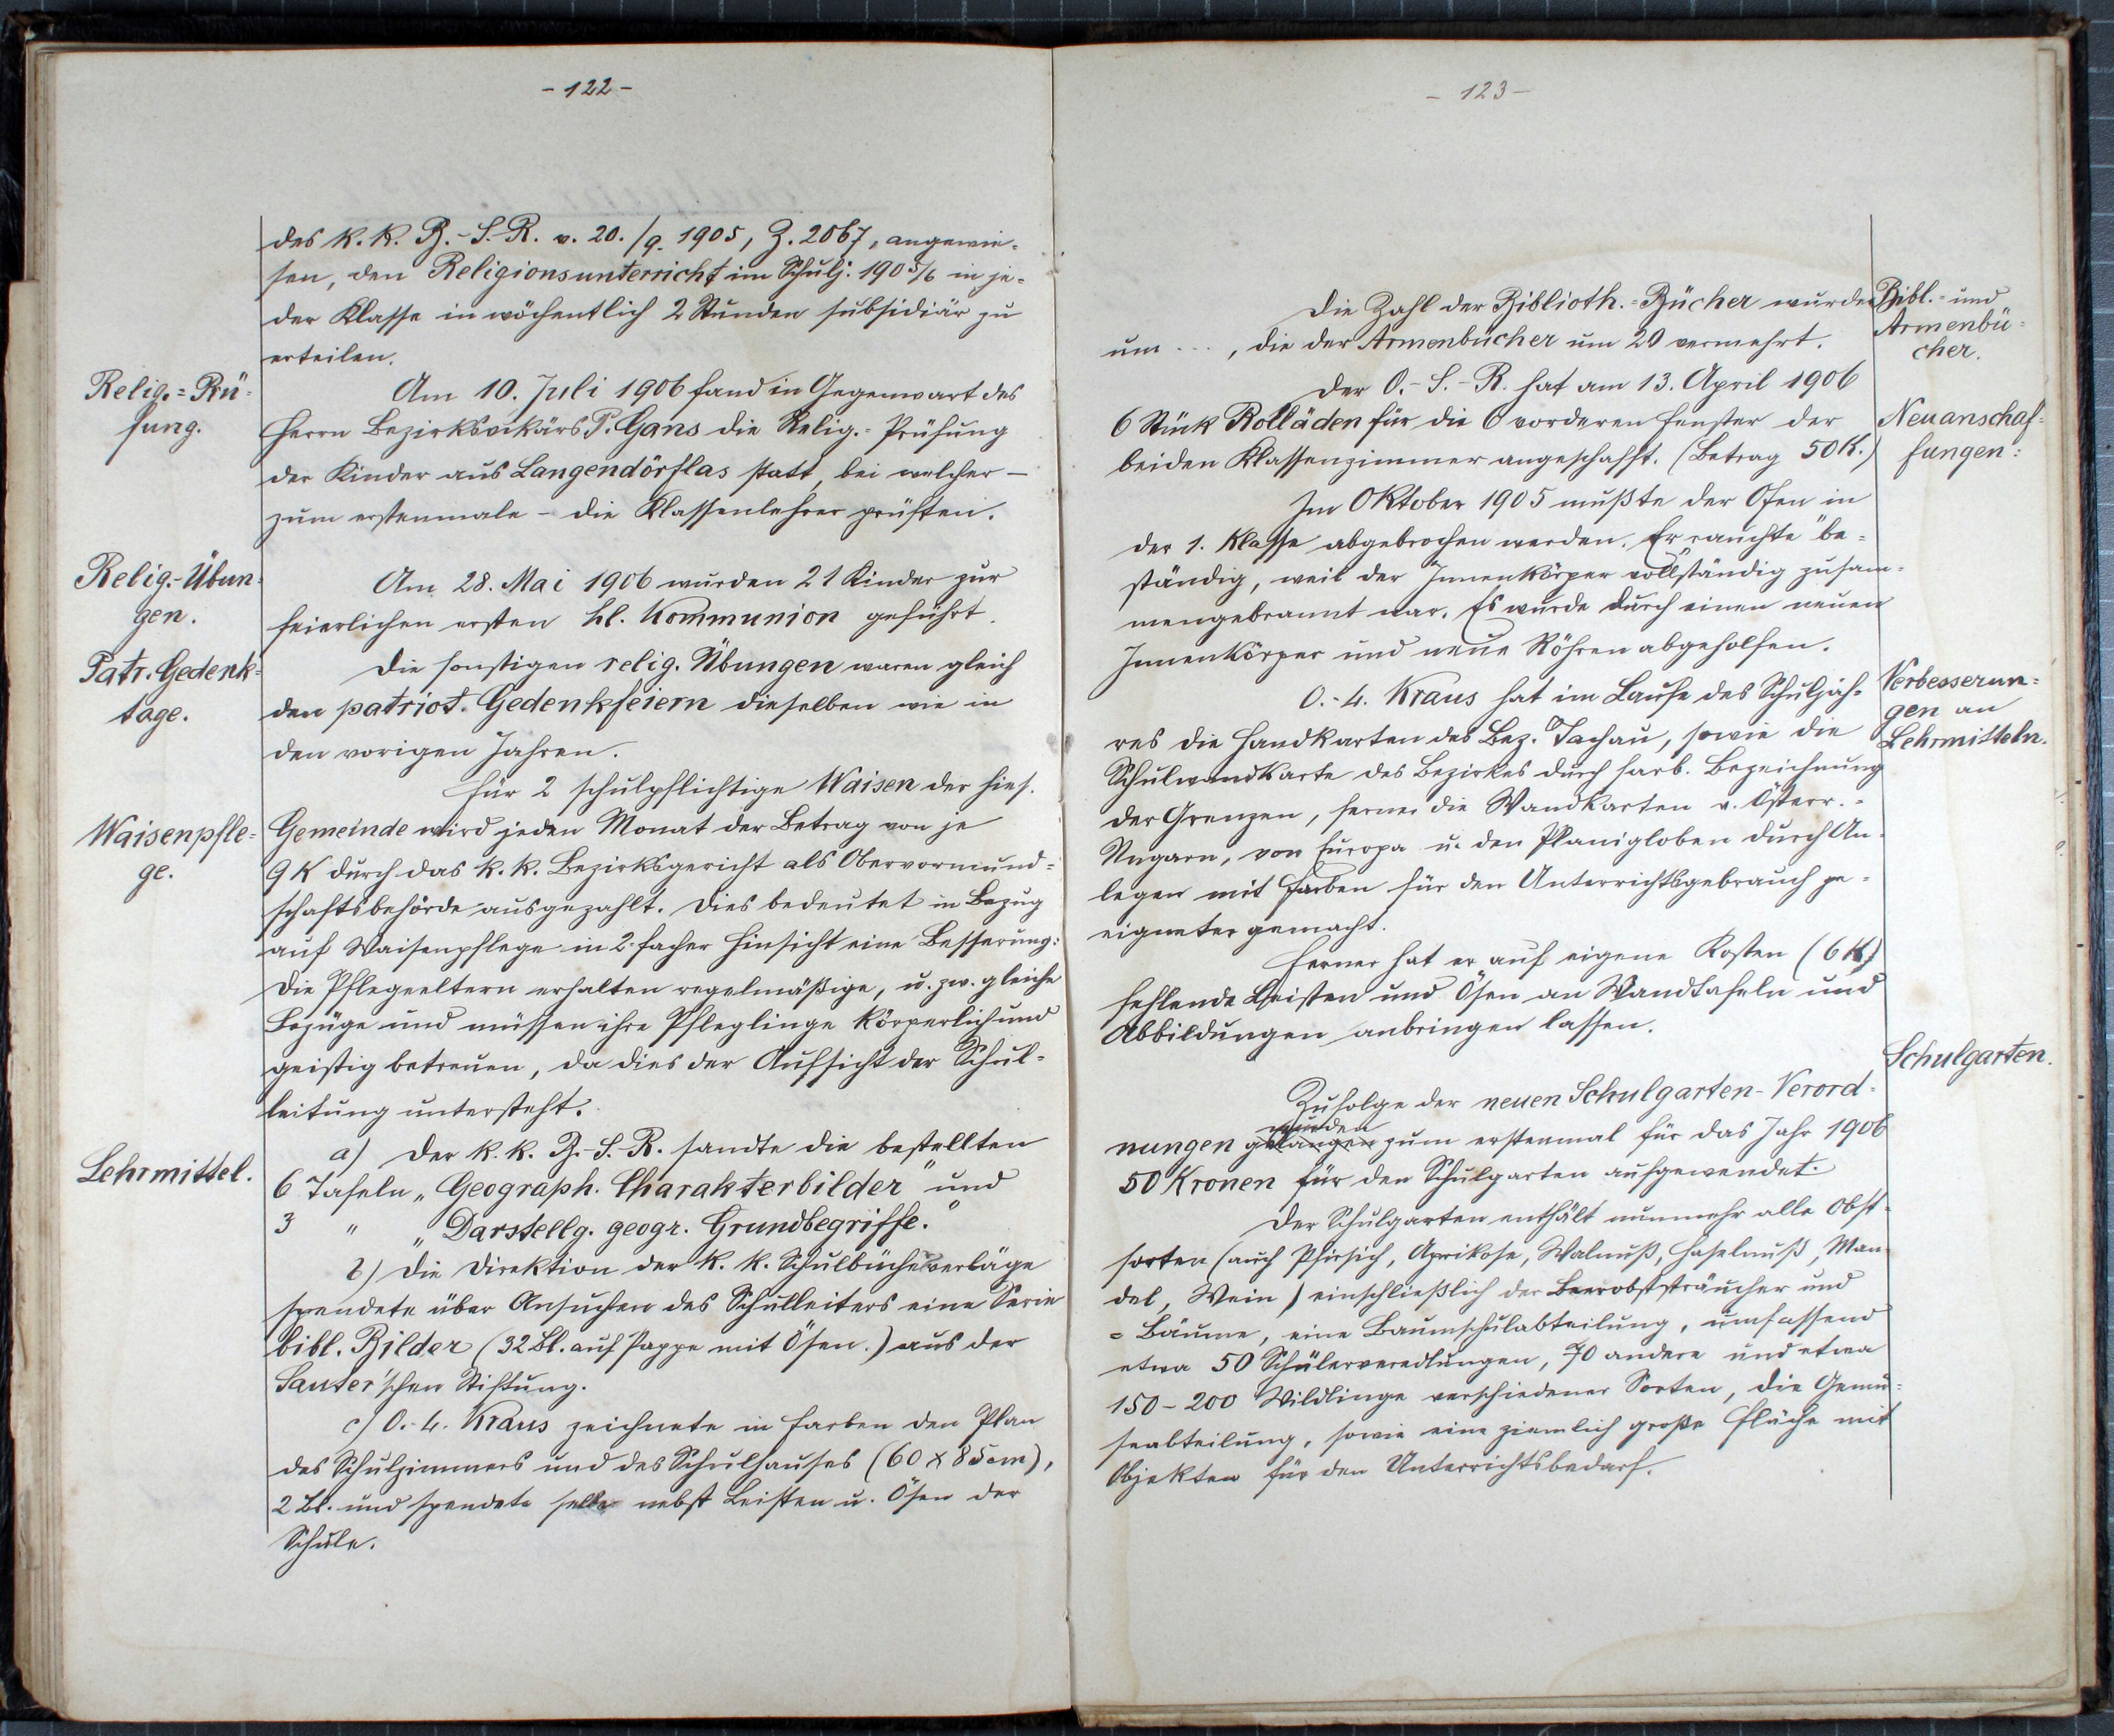 - 122 -
des k. k. B.-S.-R. v. 20./9. 1905, Z. 2067, angewie-
sen, den Religionsunterricht im Schulj. 1905/6 in je-
der Klasse in wöchentlich 2 Stunden subsidiär zu
erteilen.
Relig.=Prü-
fung.
Am 10. Juli 1906 fand in Gegenwart des
Herrn Bezirksvikärs P. Gans die Relig.-Prüfung
der Kinder aus Langendörflas statt, bei welcher –
zum erstenmale – die Klassenlehrer prüften.
Relig.-Übun-
gen.
Am 28. Mai 1906 wurden 21 Kinder zur
feierlichen ersten hl. Kommunion geführt.
Patr. Gedenk-
tage.
Die sonstigen relig. Übungen waren gleich
den patriot. Gedenkfeiern dieselben wie in
den vorigen Jahren.
Waisenpfle-
ge.
Für 2 schulpflichtige Waisen der hies.
Gemeinde wird jeden Monat der Betrag von je
9 K durch das k. k. Bezirksgericht als Obervormund-
schaftsbehörde ausgezahlt. Dies bedeutet in Bezug
auf Waisenpflege in 2-facher Hinsicht eine Besserung:
Die Pflegeeltern erhalten regelmäßige, u. zw. gleiche
Bezüge und müssen ihre Pfleglinge körperlich und
geistig betreuen, da dies der Aufsicht der Schul-
leitung untersteht.
Lehrmittel.
a) Der k. k. B.-S.-R. sandte die bestellten
6 Tafeln „Geograph. Charakterbilder" und
3 " „Darstellg. geogr. Grundbegriffe."
b) Die Direktion der k. k. Schulbücherverläge
spendete über Ansuchen des Schulleiters eine Serie
bibl. Bilder (32 Bl. auf Pappe mit Ösen.) aus der
Sauter'schen Stiftung.
c) O.-L. Kraus zeichnete in Farben den Plan
des Schulzimmers und des Schulhauses (60 x 85cm),
2 Bl. und spendete selbe nebst Leisten u. Ösen der
Schule.
- 123 -
Bibl.- und
Armenbü-
cher.
Die Zahl der Biblioth.-Bücher wurde
um ..., die der Armenbücher um 20 vermehrt.
Neuanschaf-
fungen:
Der O.-S.-R. hat am 13. April 1906
6 Stück Rolläden für die 6 vorderen Fenster der
beiden Klassenzimmer angeschafft. (Betrag 50 K.)
Im Oktober 1905 mußte der Ofen in
der 1. Klasse abgebrochen werden. Er rauchte be-
ständig, weil der Innenkörper vollständig zusam-
mengebrannt war. Es wurde durch einen neuen
Innenkörper und neue Röhren abgeholfen.
Verbesserun-
gen an
Lehrmitteln.
O.-L. Kraus hat im Laufe des Schuljah-
res die Handkarten des Bez. Tachau, sowie die
Schulwandkarte des Bezirkes durch farb. Bezeichnung
der Grenzen, ferner die Wandkarten v. Österr.-
Ungarn, von Europa u. den Planigloben durch An-
legen mit Farben für den Unterrichtsgebrauch ge-
eigneter gemacht.
Ferner hat er auf eigene Kosten (6 K)
fehlende Leisten und Ösen an Wandtafeln und
Abbildungen anbringen lassen.
Schulgarten.
Zufolge der neuen Schulgarten-Verord-
wurden
nungen gelangen zum erstenmal für das Jahr 1906
50 Kronen für den Schulgarten aufgewendet.
Der Schulgarten enthält nunmehr alle Obst-
sorten (auch Pfirsich, Aprikose, Walnuß, Haselnuß, Man-
del, Wein) einschließlich der Beerobststräucher und
-Bäume, eine Baumschulabteilung, umfassend
etwa 50 Schülerveredlungen, 70 andere und etwa
150-200 Wildlinge verschiedener Sorten, die Gemü-
seabteilung, sowie eine ziemlich große Fläche mit
Objekten für den Unterrichtsbedarf.